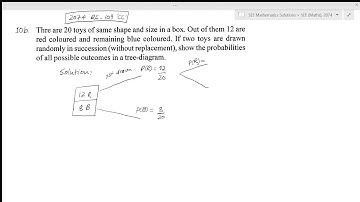 SEE Mathematics Solutions > SEE (Math), 2074
10b. Thre are 20 toys of same shape and size in a box. Out of them 12 are
red coloured and remaining blue coloured. If two toys are drawn
randomly in succession (without replacement), show the probabilities
of all possible outcomes in a tree-diagram.
Solution:
1st drawn
P(R) = 12/20
P(R) =
12 R
8 B
P(B) = 8/20